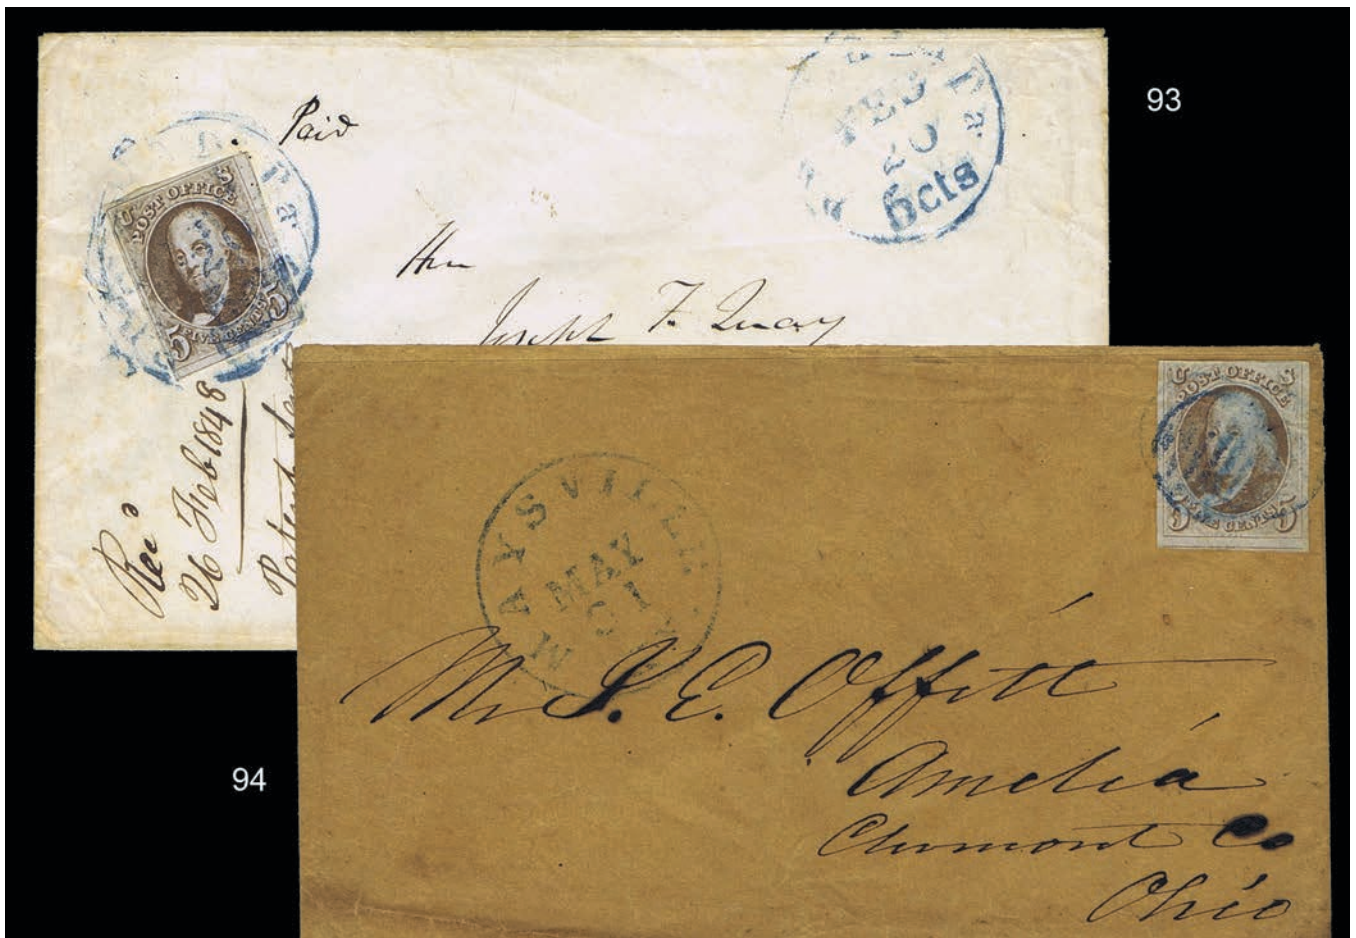 93
Paid
Feb
20
5cts
Pa.
U S
POST OFFICE
5 FIVE CENTS 5
Hon
Joseph F. Quay
Rec'd
26 Feb 1848
94
U S
POST OFFICE
5 FIVE CENTS 5
MAYSVILLE
MAY
31
Mr J. E. Offitt
Amelia
Clermont Co
Ohio